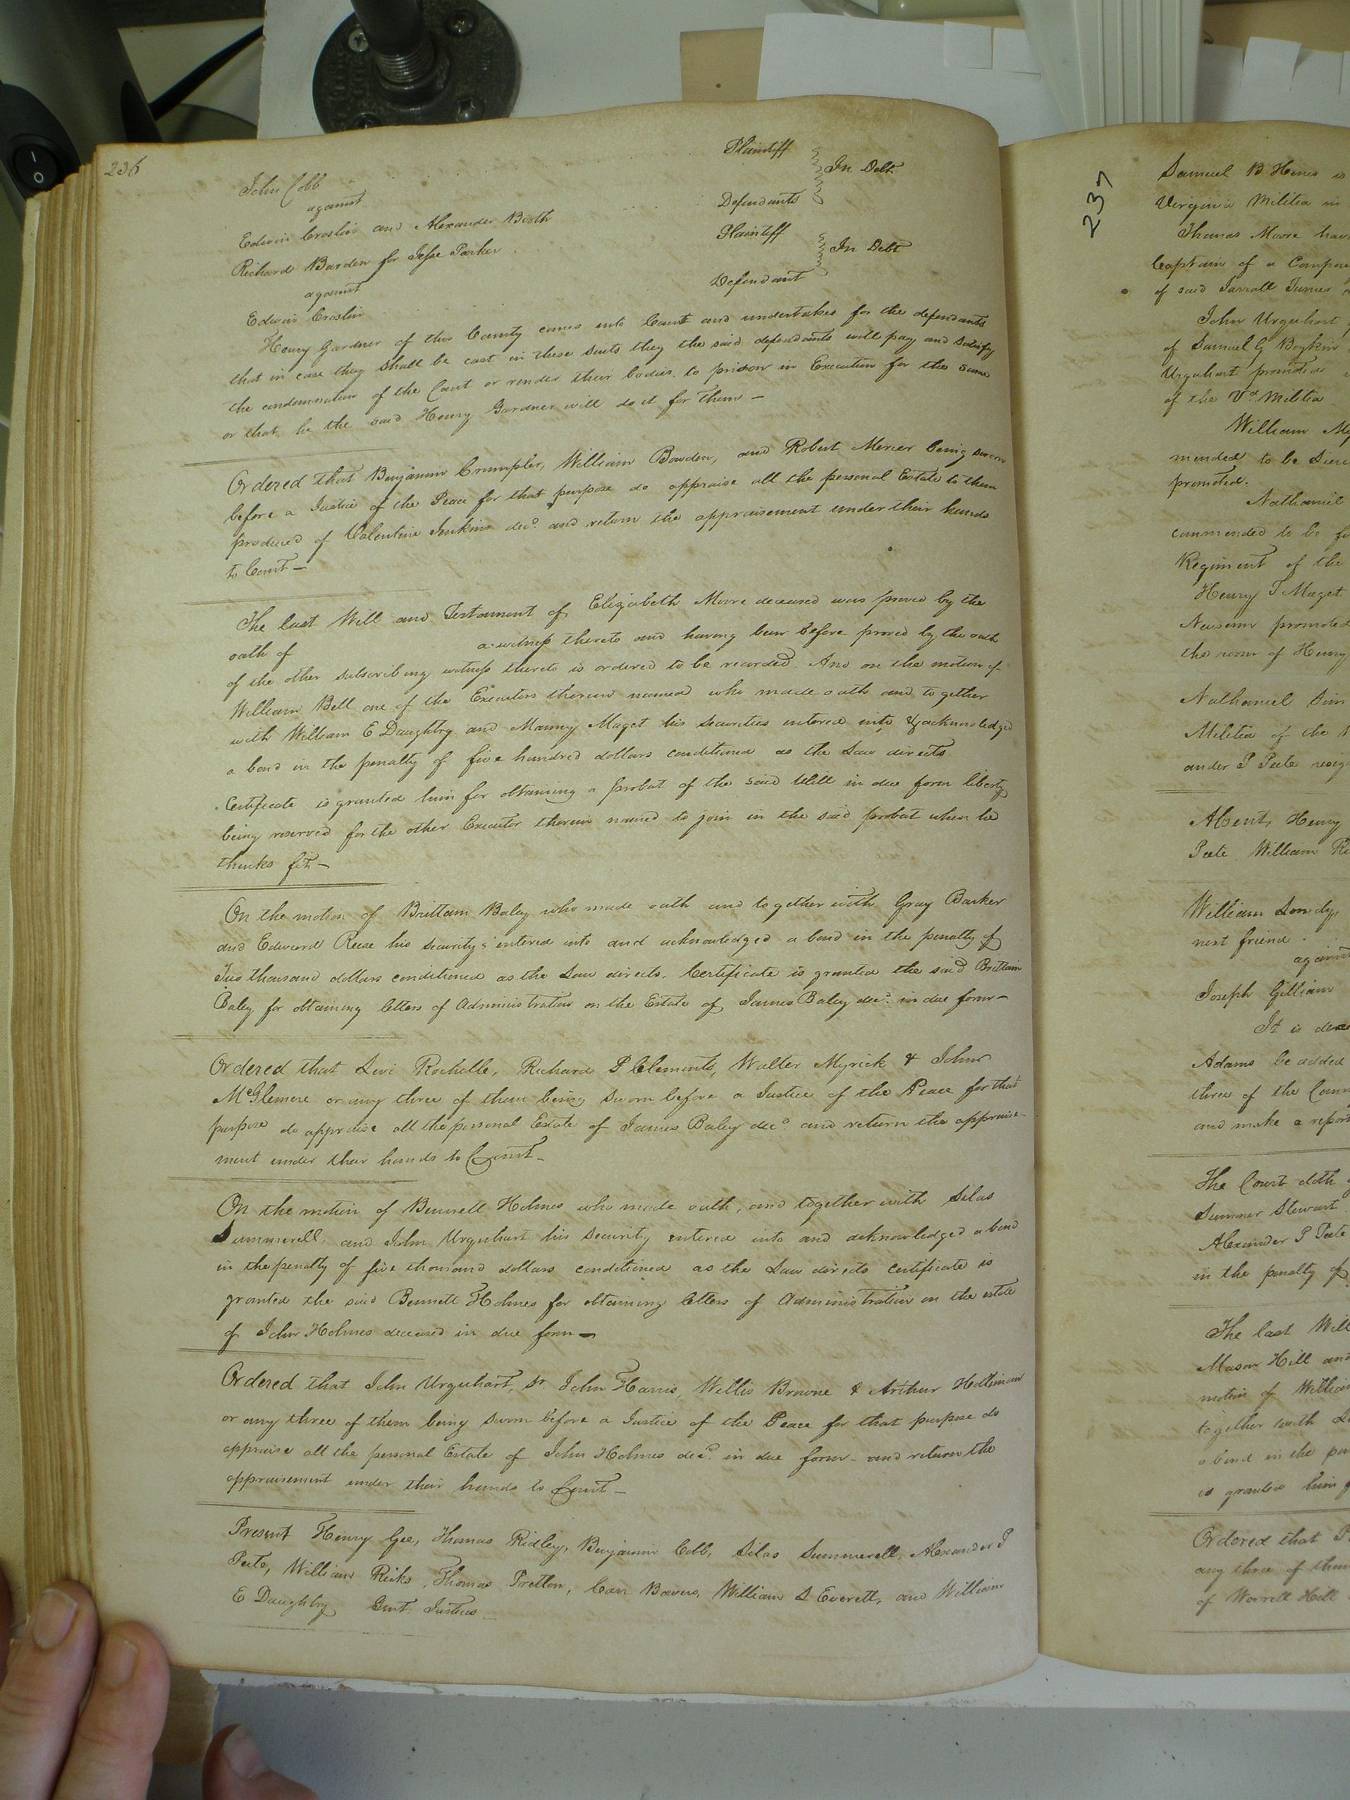 236
John Cobb Plaintiff
against In Debt
Edwin Croslin and Alexander Booth Defendants
Richard Barden for Jesse Parker Plaintiff
against In Debt
Edwin Croslin Defendant
Henry Gardner of this County comes into Court and undertakes for the defendants
that in case they shall be cast in these suits they the said defendants will pay and satisfy
the condemnation of the Court or render their bodies to prison in Execution for the same
or that he the said Henry Gardner will do it for them —
Ordered that Benjamin Crumpler, William Bowden, and Robert Mercer being sworn
before a Justice of the Peace for that purpose do appraise all the personal Estate to them
produced of Valentine Jenkins decd. and return the appraisement under their hands
to Court —
The last Will and Testament of Elizabeth Moore deceased was proved by the
oath of a witness thereto and having been before proved by the oath
of the other subscribing witness thereto is ordered to be recorded. And on the motion of
William Bell one of the Executors therein named who made oath and together
with William E Daughtry and Manny Maget his securities entered into & acknowledged
a bond in the penalty of five hundred dollars conditioned as the Law directs
Certificate is granted him for obtaining a probat of the said Will in due form liberty
being reserved for the other Executor therein named to join in the said probat when he
thinks fit —
On the motion of Brittain Baley who made oath and together with Gray Barker
and Edward Reese his security entered into and acknowledged a bond in the penalty of
Two thousand dollars conditioned as the Law directs. Certificate is granted the said Brittain
Baley for obtaining letters of Administration on the Estate of James Baley decd. in due form —
Ordered that Levi Rochelle, Richard P Clements, Walter Myrick & John
McGlemere or any three of them being sworn before a Justice of the Peace for that
purpose do appraise all the personal Estate of James Baley decd. and return the appraise-
ment under their hands to Court —
On the motion of Bennett Holmes who made oath, and together with Silas
Summerell, and John Urquhart his security entered into and acknowledged a bond
in the penalty of five thousand dollars conditioned as the Law directs certificate is
granted the said Bennett Holmes for obtaining letters of Administration on the estate
of John Holmes deceased in due form —
Ordered that John Urquhart, Sr John Harris, Willis Browne & Arthur Holliman
or any three of them being sworn before a Justice of the Peace for that purpose do
appraise all the personal Estate of John Holmes decd. in due form — and return the
appraisement under their hands to Court —
Present Henry Gee, Thomas Ridley, Benjamin Cobb, Silas Summerell, Alexander P
Peete, William Ricks, Thomas Pretlow, Carr Bowers, William D Everett, and William
E Daughtry Gent. Justices
237
Samuel B Hines is
Virginia Militia in
Thomas Moore
Captain of a
of said Jarrall Turner
John Urquhart
of Samuel G Boykin
Urquhart promoted
of the Va Militia
William
mended to be
promoted.
Nathaniel
commended to be
Regiment of the
Henry T Maget
Newsom promoted
the room of Henry
Nathaniel
Militia of the
ander P Peete
Absent, Henry
Peete William
William
next friend
against
Joseph Gilliam
It is
Adams be added
three of the
and make a report
The Court doth
Sumner Stewart
Alexander P Peete
in the penalty of
The last Will
Mason Hill and
motion of William
together with
a bond in the
is granted him
Ordered that
any three of them
of Worrell Hill